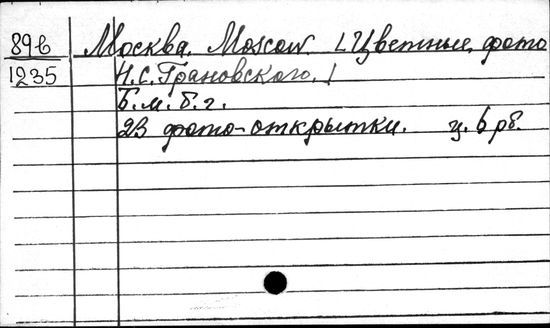 89б Москва. Moscow. [Цветные фото
1235 Н.С. Грановского.]
Б.м. б.г.
23 фото-открытки. ц. 6 рб.